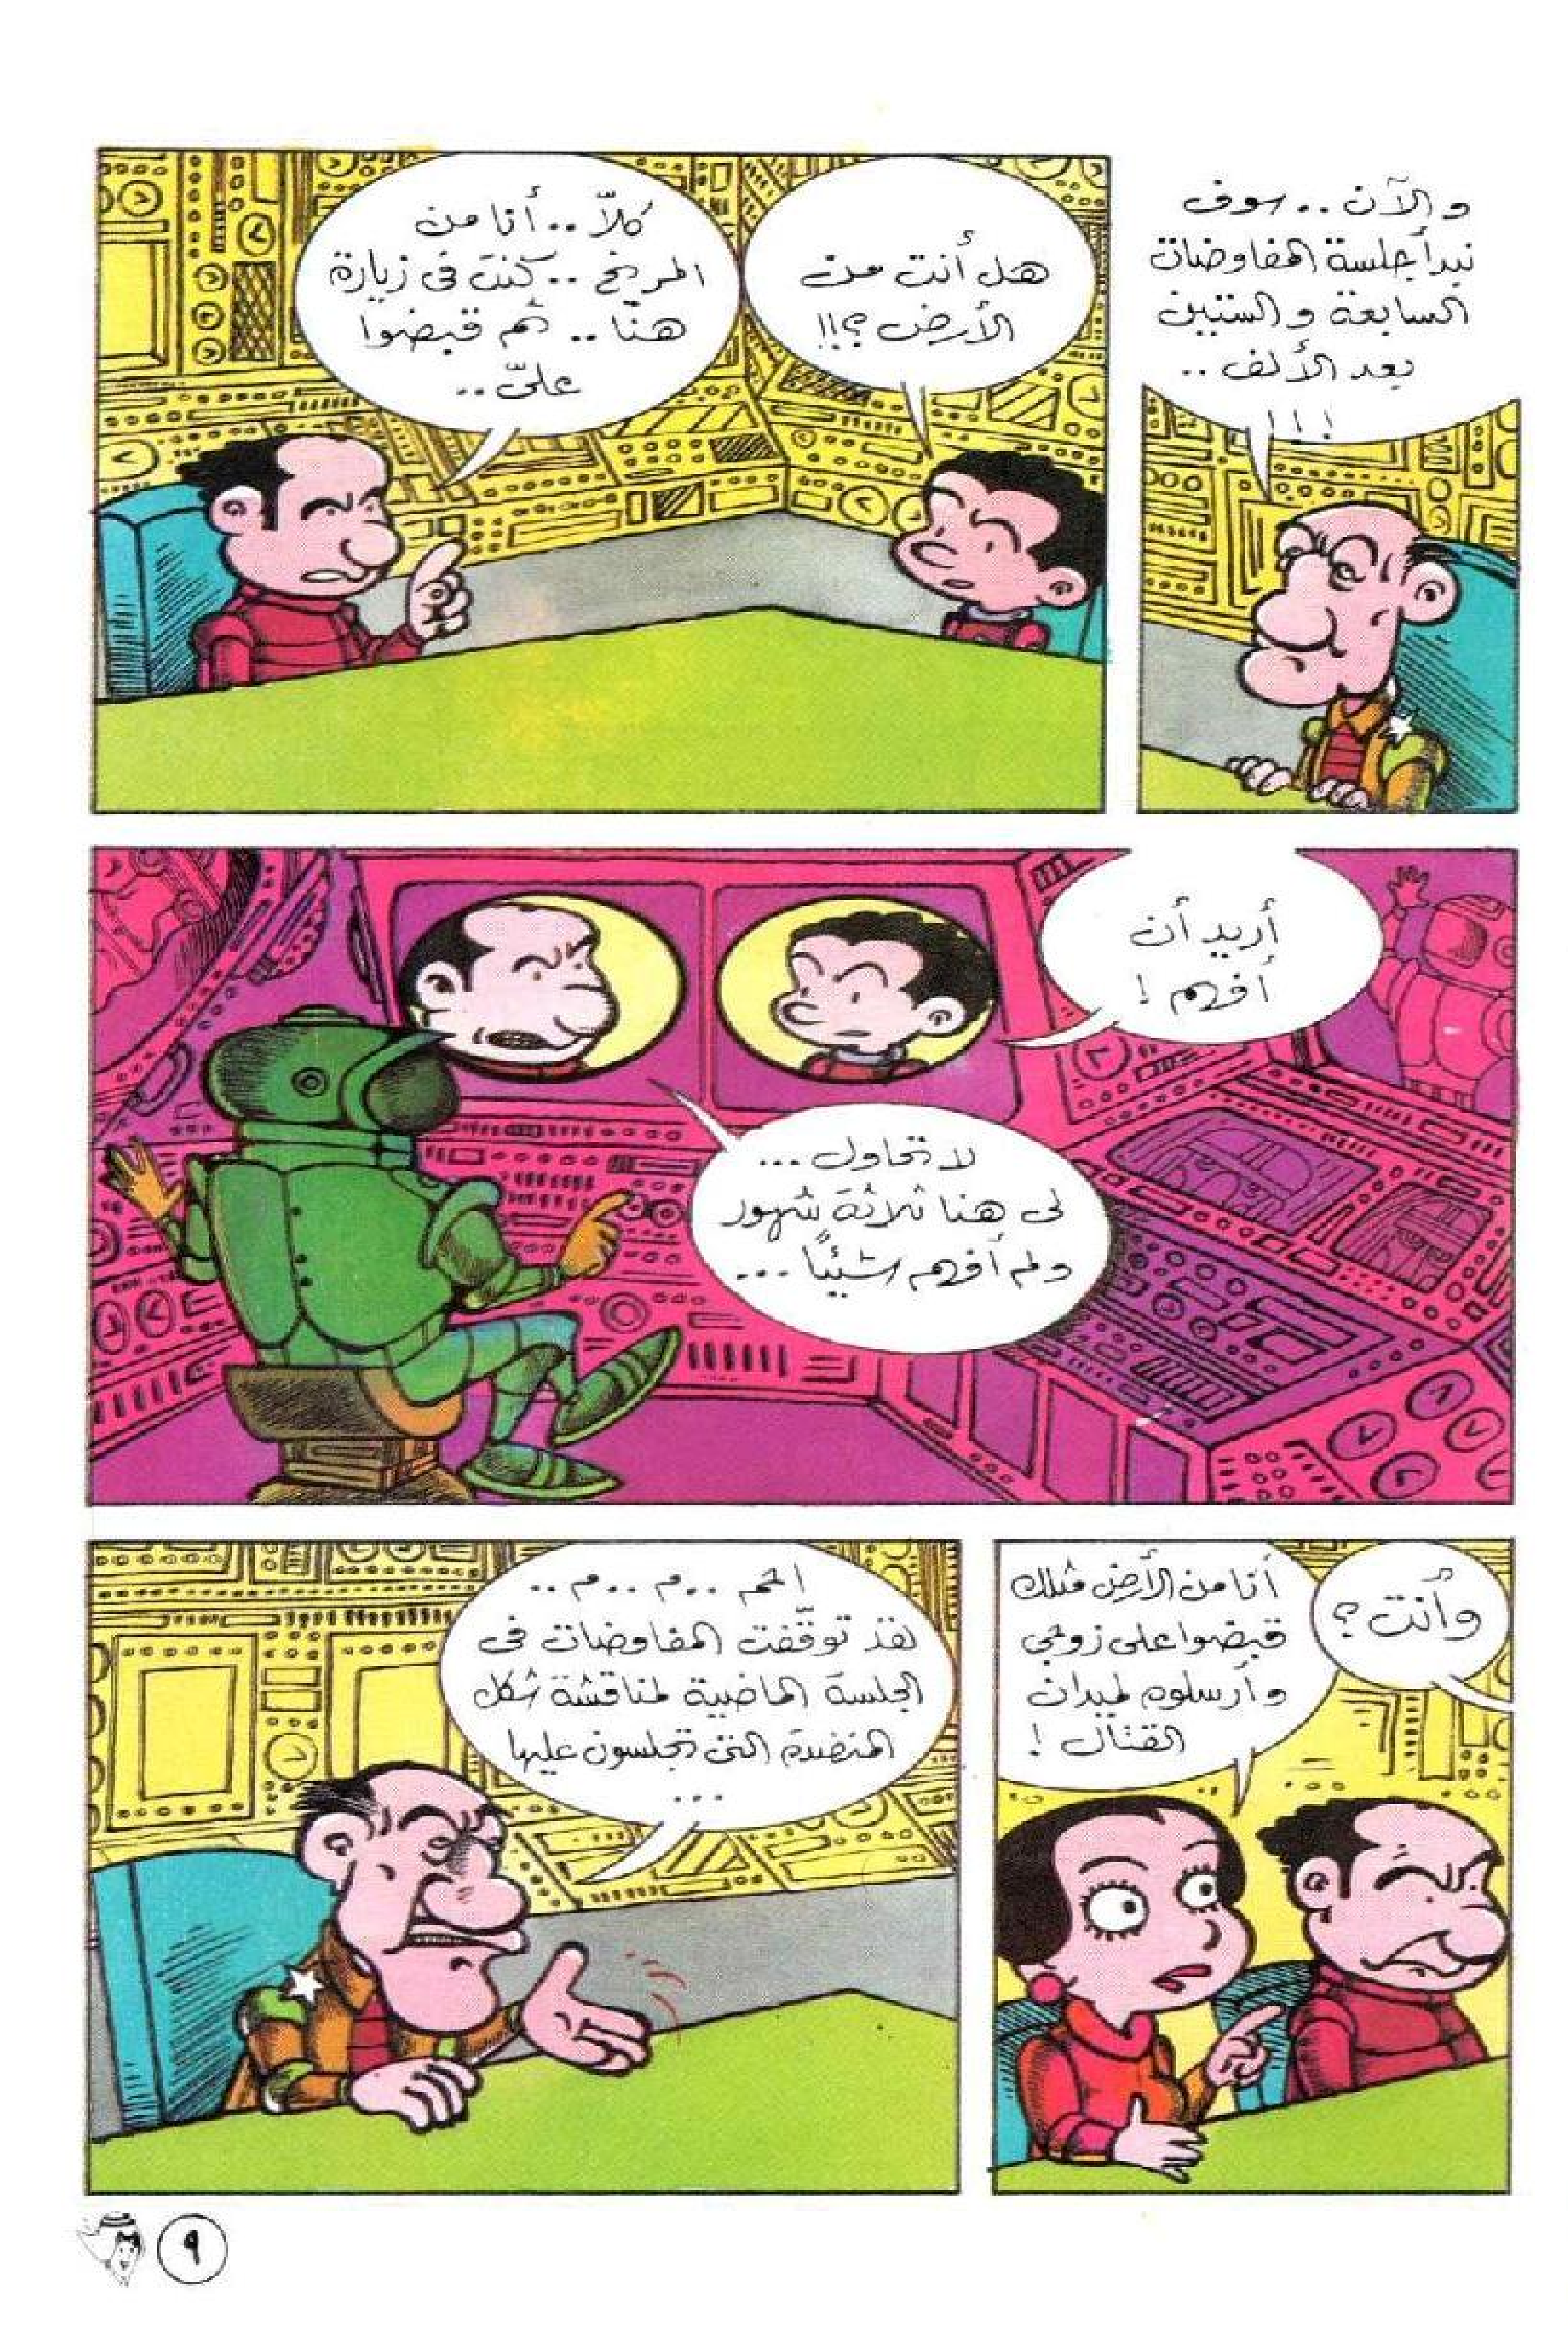 والآن .. سوف
نبدأ جلسة المفاوضات
السابعة والستين
بعد الألف ..
!!!
هل أنت من
الأرض ؟!!
كلاّ .. أنا من
المريخ .. كنت فى زيارة
هنا .. ثم قبضوا
علىّ ..
أريد أن
أفهم !
لا تحاول ...
لى هنا ثلاثة شهور
ولم أفهم شيئًا ...
وأنت ؟
أنا من الأرض مثلك
قبضوا على زوجى
وأرسلوه لميدان
القتال !
احم .. م .. م ..
لقد توقّفت المفاوضات فى
الجلسة الماضية لمناقشة شكل
المنضدة التى تجلسون عليها
...
٩